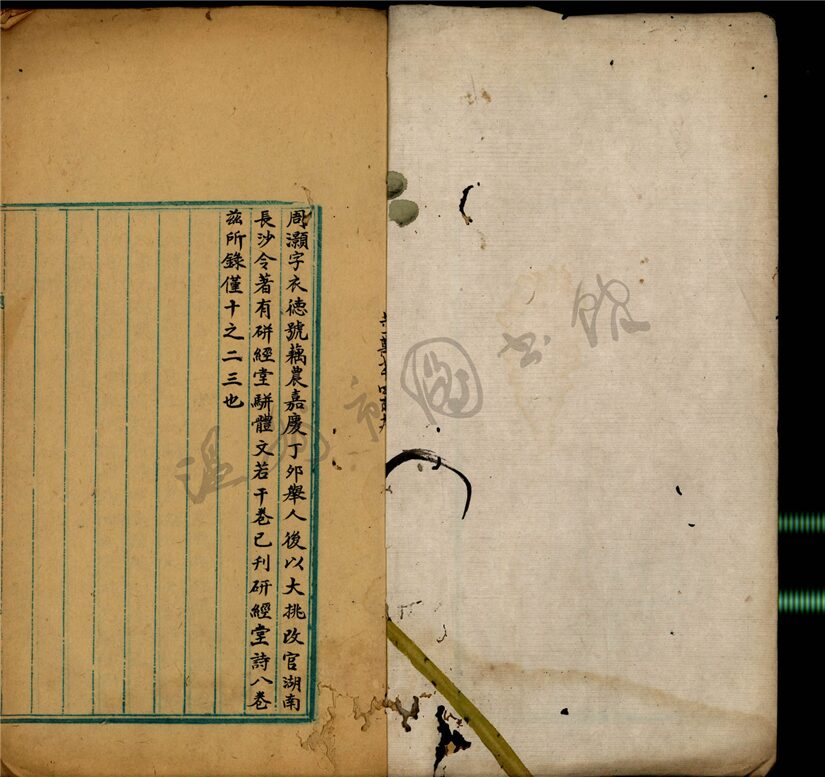 周灝字衣德號藕農嘉慶丁夘舉人後以大挑改官湖南
長沙令著有研經堂駢體文若干卷已刊研經堂詩八卷
茲所錄僅十之二三也
温州市圖书馆